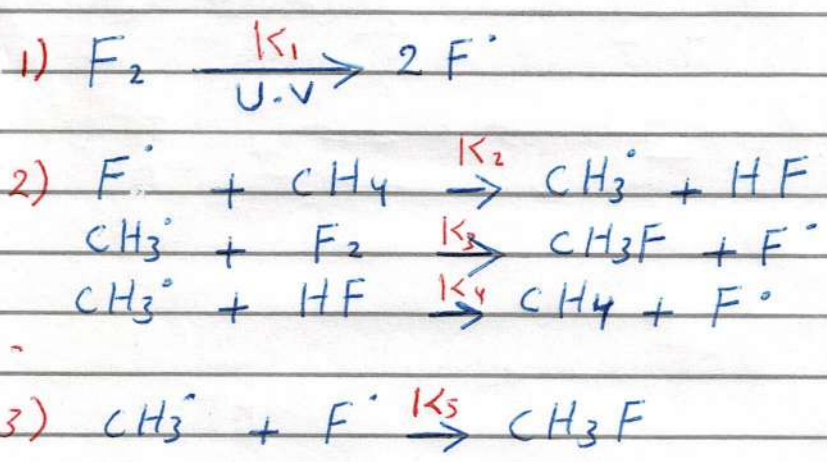 1) F₂ K₁ U.V → 2 F˙
2) F˙ + CH₄ K₂ → CH₃˙ + HF
CH₃˙ + F₂ K₃ → CH₃F + F˙
CH₃˙ + HF K₄ → CH₄ + F˙
3) CH₃˙ + F˙ K₅ → CH₃F